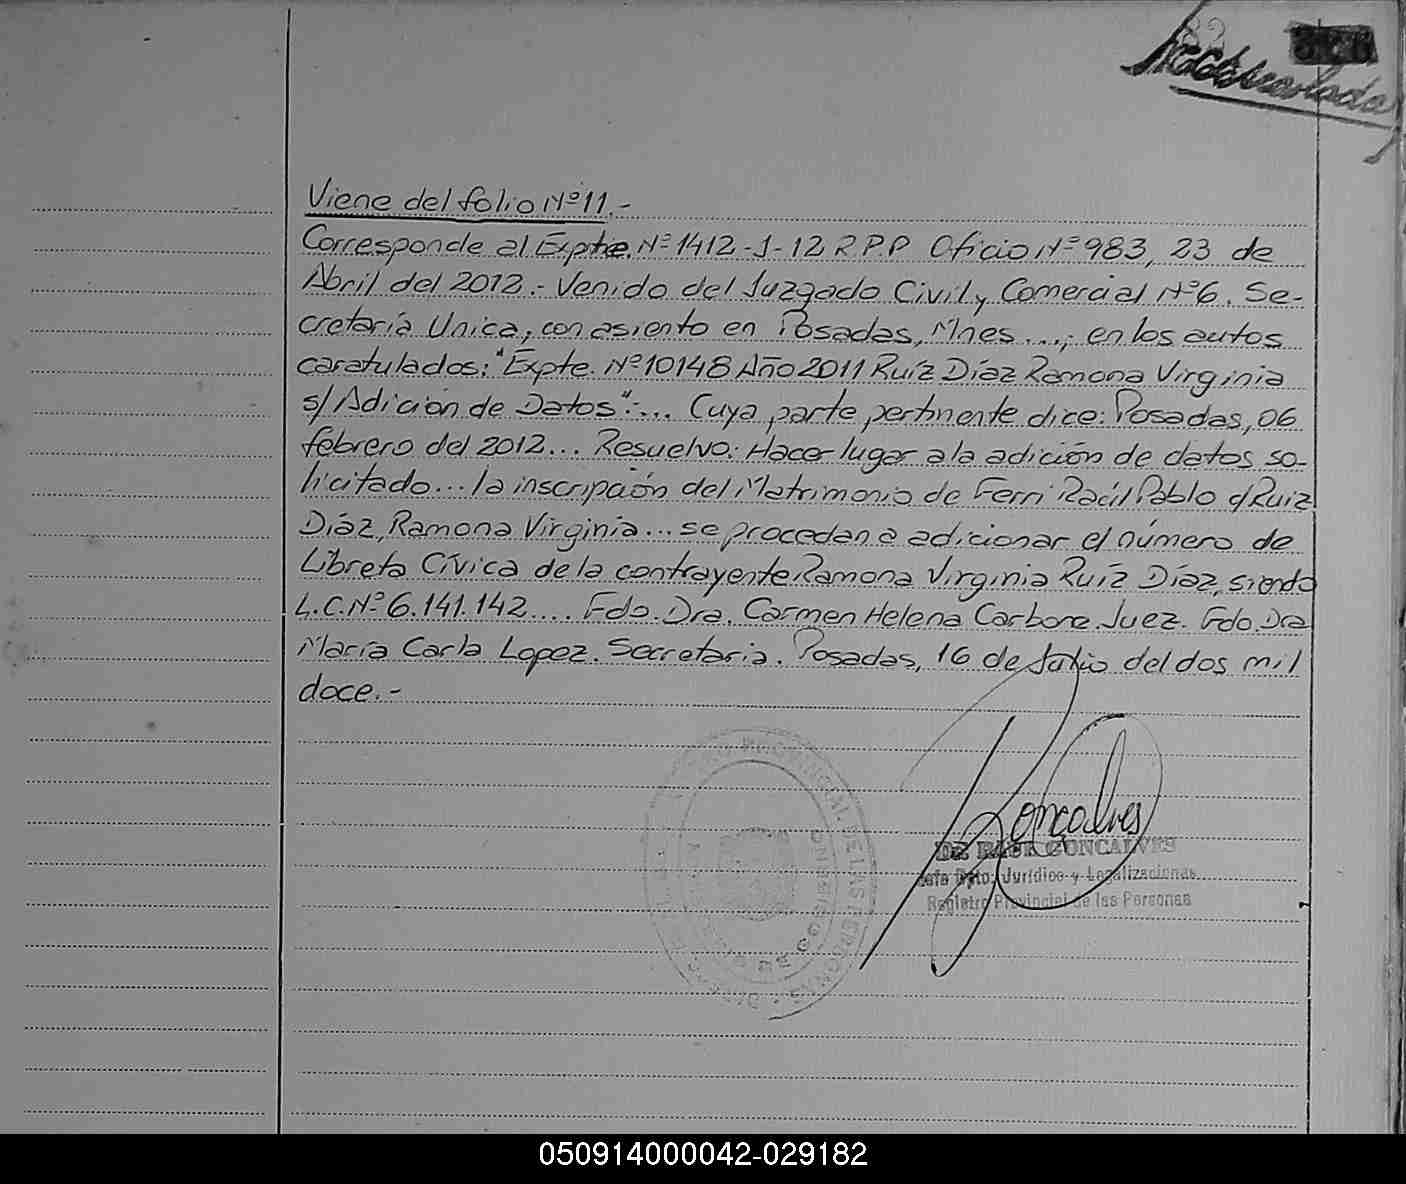 Viene del folio Nº 11.-
Corresponde al Expte. Nº 1412-J-12 R.P.P Oficio Nº 983, 23 de
Abril del 2012.- Venido del Juzgado Civil y Comercial Nº 6. Se-
cretaría Unica, con asiento en Posadas, Mnes...., en los autos
caratulados: "Expte. Nº 10148 Año 2011 Ruíz Díaz Ramona Virginia
s/ Adición de Datos":... Cuya parte pertinente dice: Posadas, 06
febrero del 2012... Resuelvo: Hacer lugar a la adición de datos so-
licitado... la inscripción del Matrimonio de Ferri Raúl Pablo c/ Ruiz
Díaz, Ramona Virginia... se procedan a adicionar el número de
Libreta Cívica de la contrayente Ramona Virginia Ruíz Díaz, siendo
L.C. Nº 6.141.142.... Fdo. Dra. Carmen Helena Carbone. Juez. Fdo. Dra
María Carla Lopez. Secretaria. Posadas, 16 de Julio del dos mil
doce.-
Gonçalves
Dr. RAUL GONCALVES
Jefe Dpto. Jurídico y Legalizaciones
Registro Provincial de las Personas
PROVINCIAL DE LAS PERSONAS
050914000042-029182